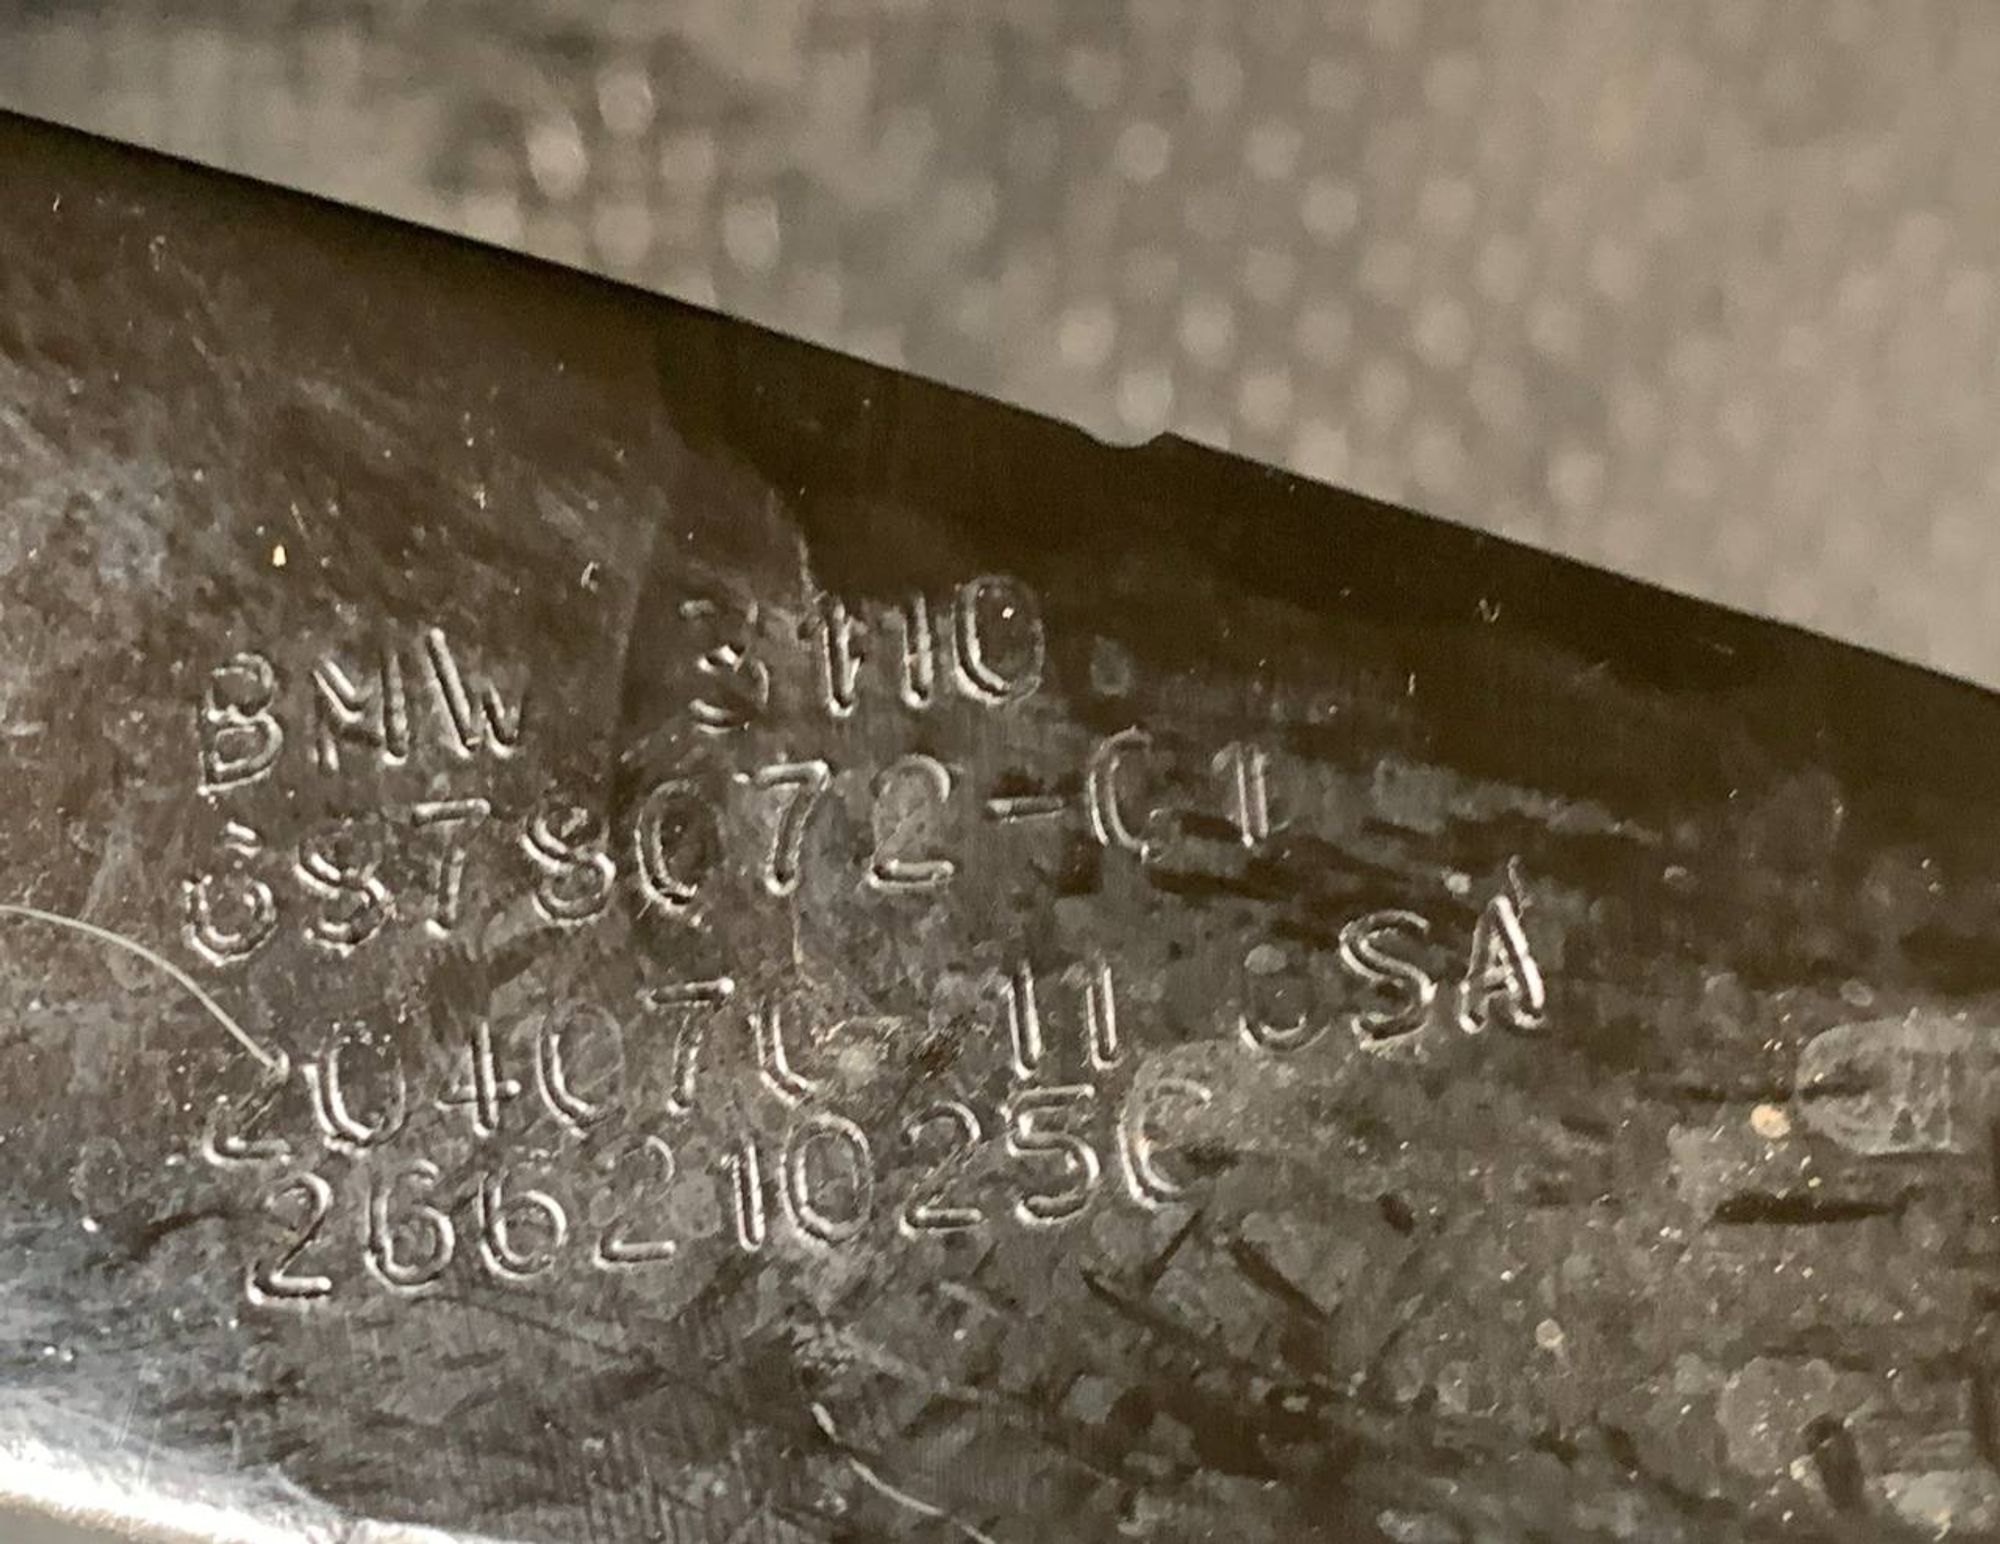 BMW 3110
6878072-01
204070 11 USA
266210256